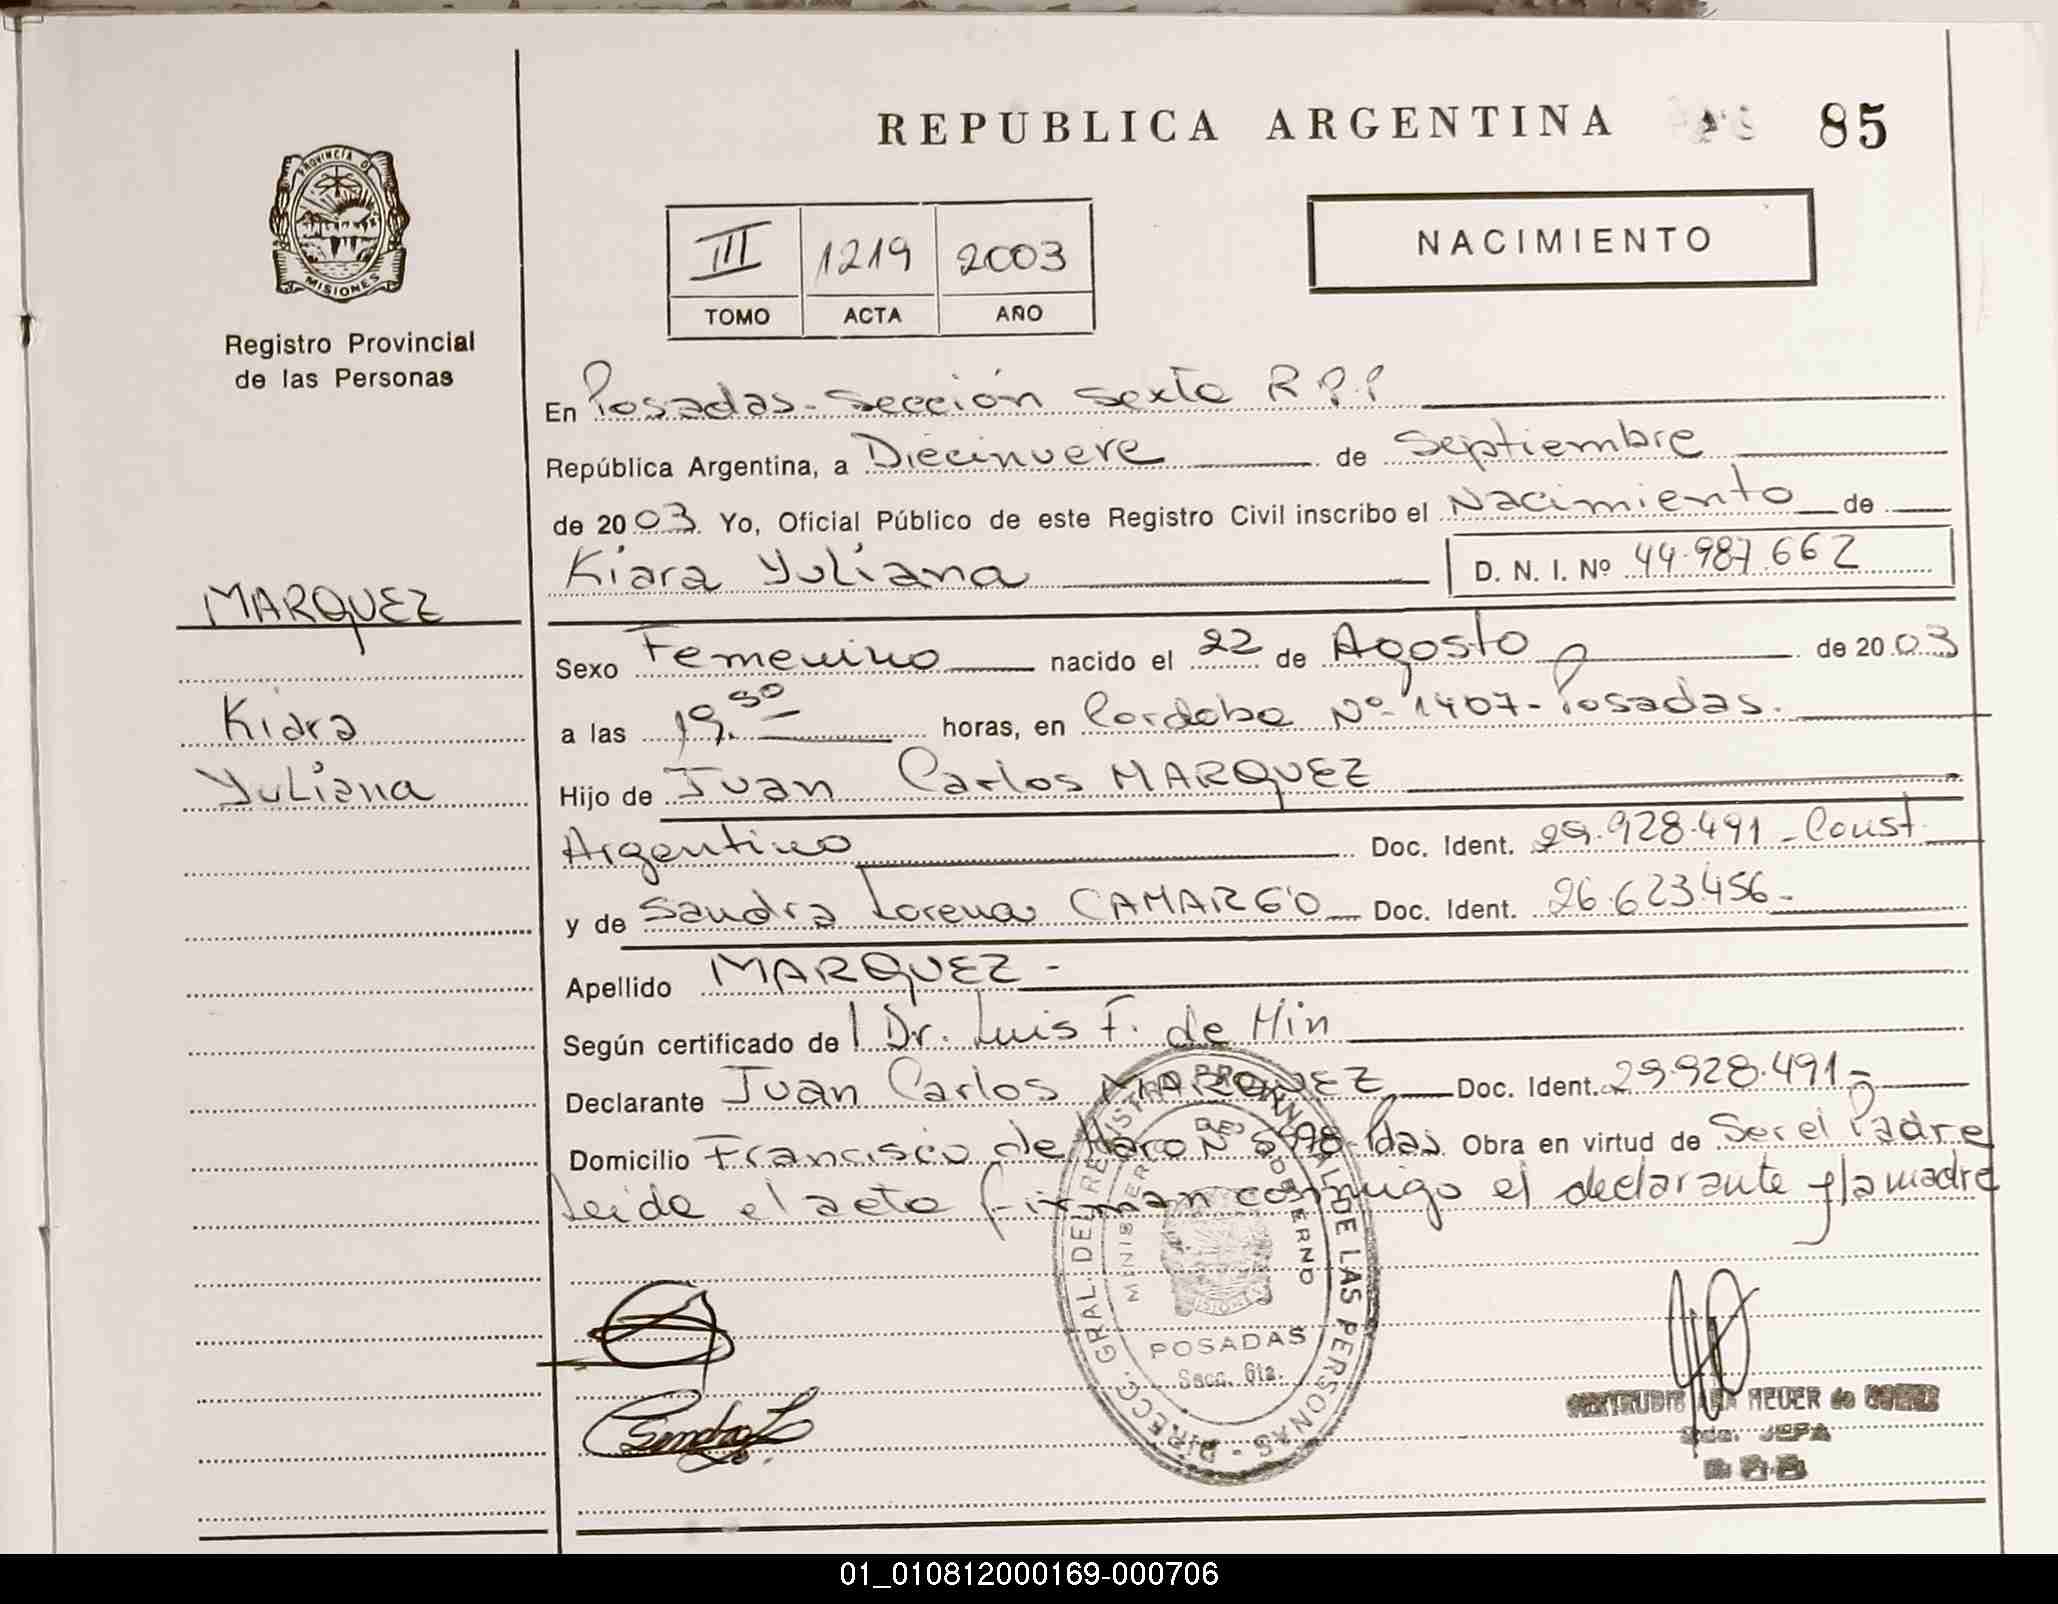 REPUBLICA ARGENTINA 85
PROVINCIA DE
MISIONES
Registro Provincial
de las Personas
III 1219 2003
TOMO ACTA AÑO
NACIMIENTO
En Posadas - Sección Sexta R.P.P
República Argentina, a Diecinueve de Septiembre
de 2003. Yo, Oficial Público de este Registro Civil inscribo el Nacimiento de
Kiara Yuliana D. N. I. Nº 44.987.662
MARQUEZ
Kiara
Yuliana
Sexo Femenino nacido el 22 de Agosto de 2003
a las 19.50 horas, en Cordoba Nº 1407 - Posadas.
Hijo de Juan Carlos MARQUEZ
Argentino Doc. Ident. 29.928.491 - Const.
y de Sandra Lorena CAMARGO Doc. Ident. 26.623.456 -
Apellido MARQUEZ -
Según certificado de Dr. Luis F. de Min
Declarante Juan Carlos MARQUEZ Doc. Ident. 29.928.491 -
Domicilio Francisco de Haro Nº Pdas. Obra en virtud de Ser el Padre
Leida el acta firman conmigo el declarante y la madre
DIRECC. GRAL. DEL REGISTRO PROVINCIAL DE LAS PERSONAS
MINISTERIO DE GOBIERNO
MISIONES
POSADAS
Secc. 6ta.
Sandra L
HEUER de
JEFA
01_010812000169-000706